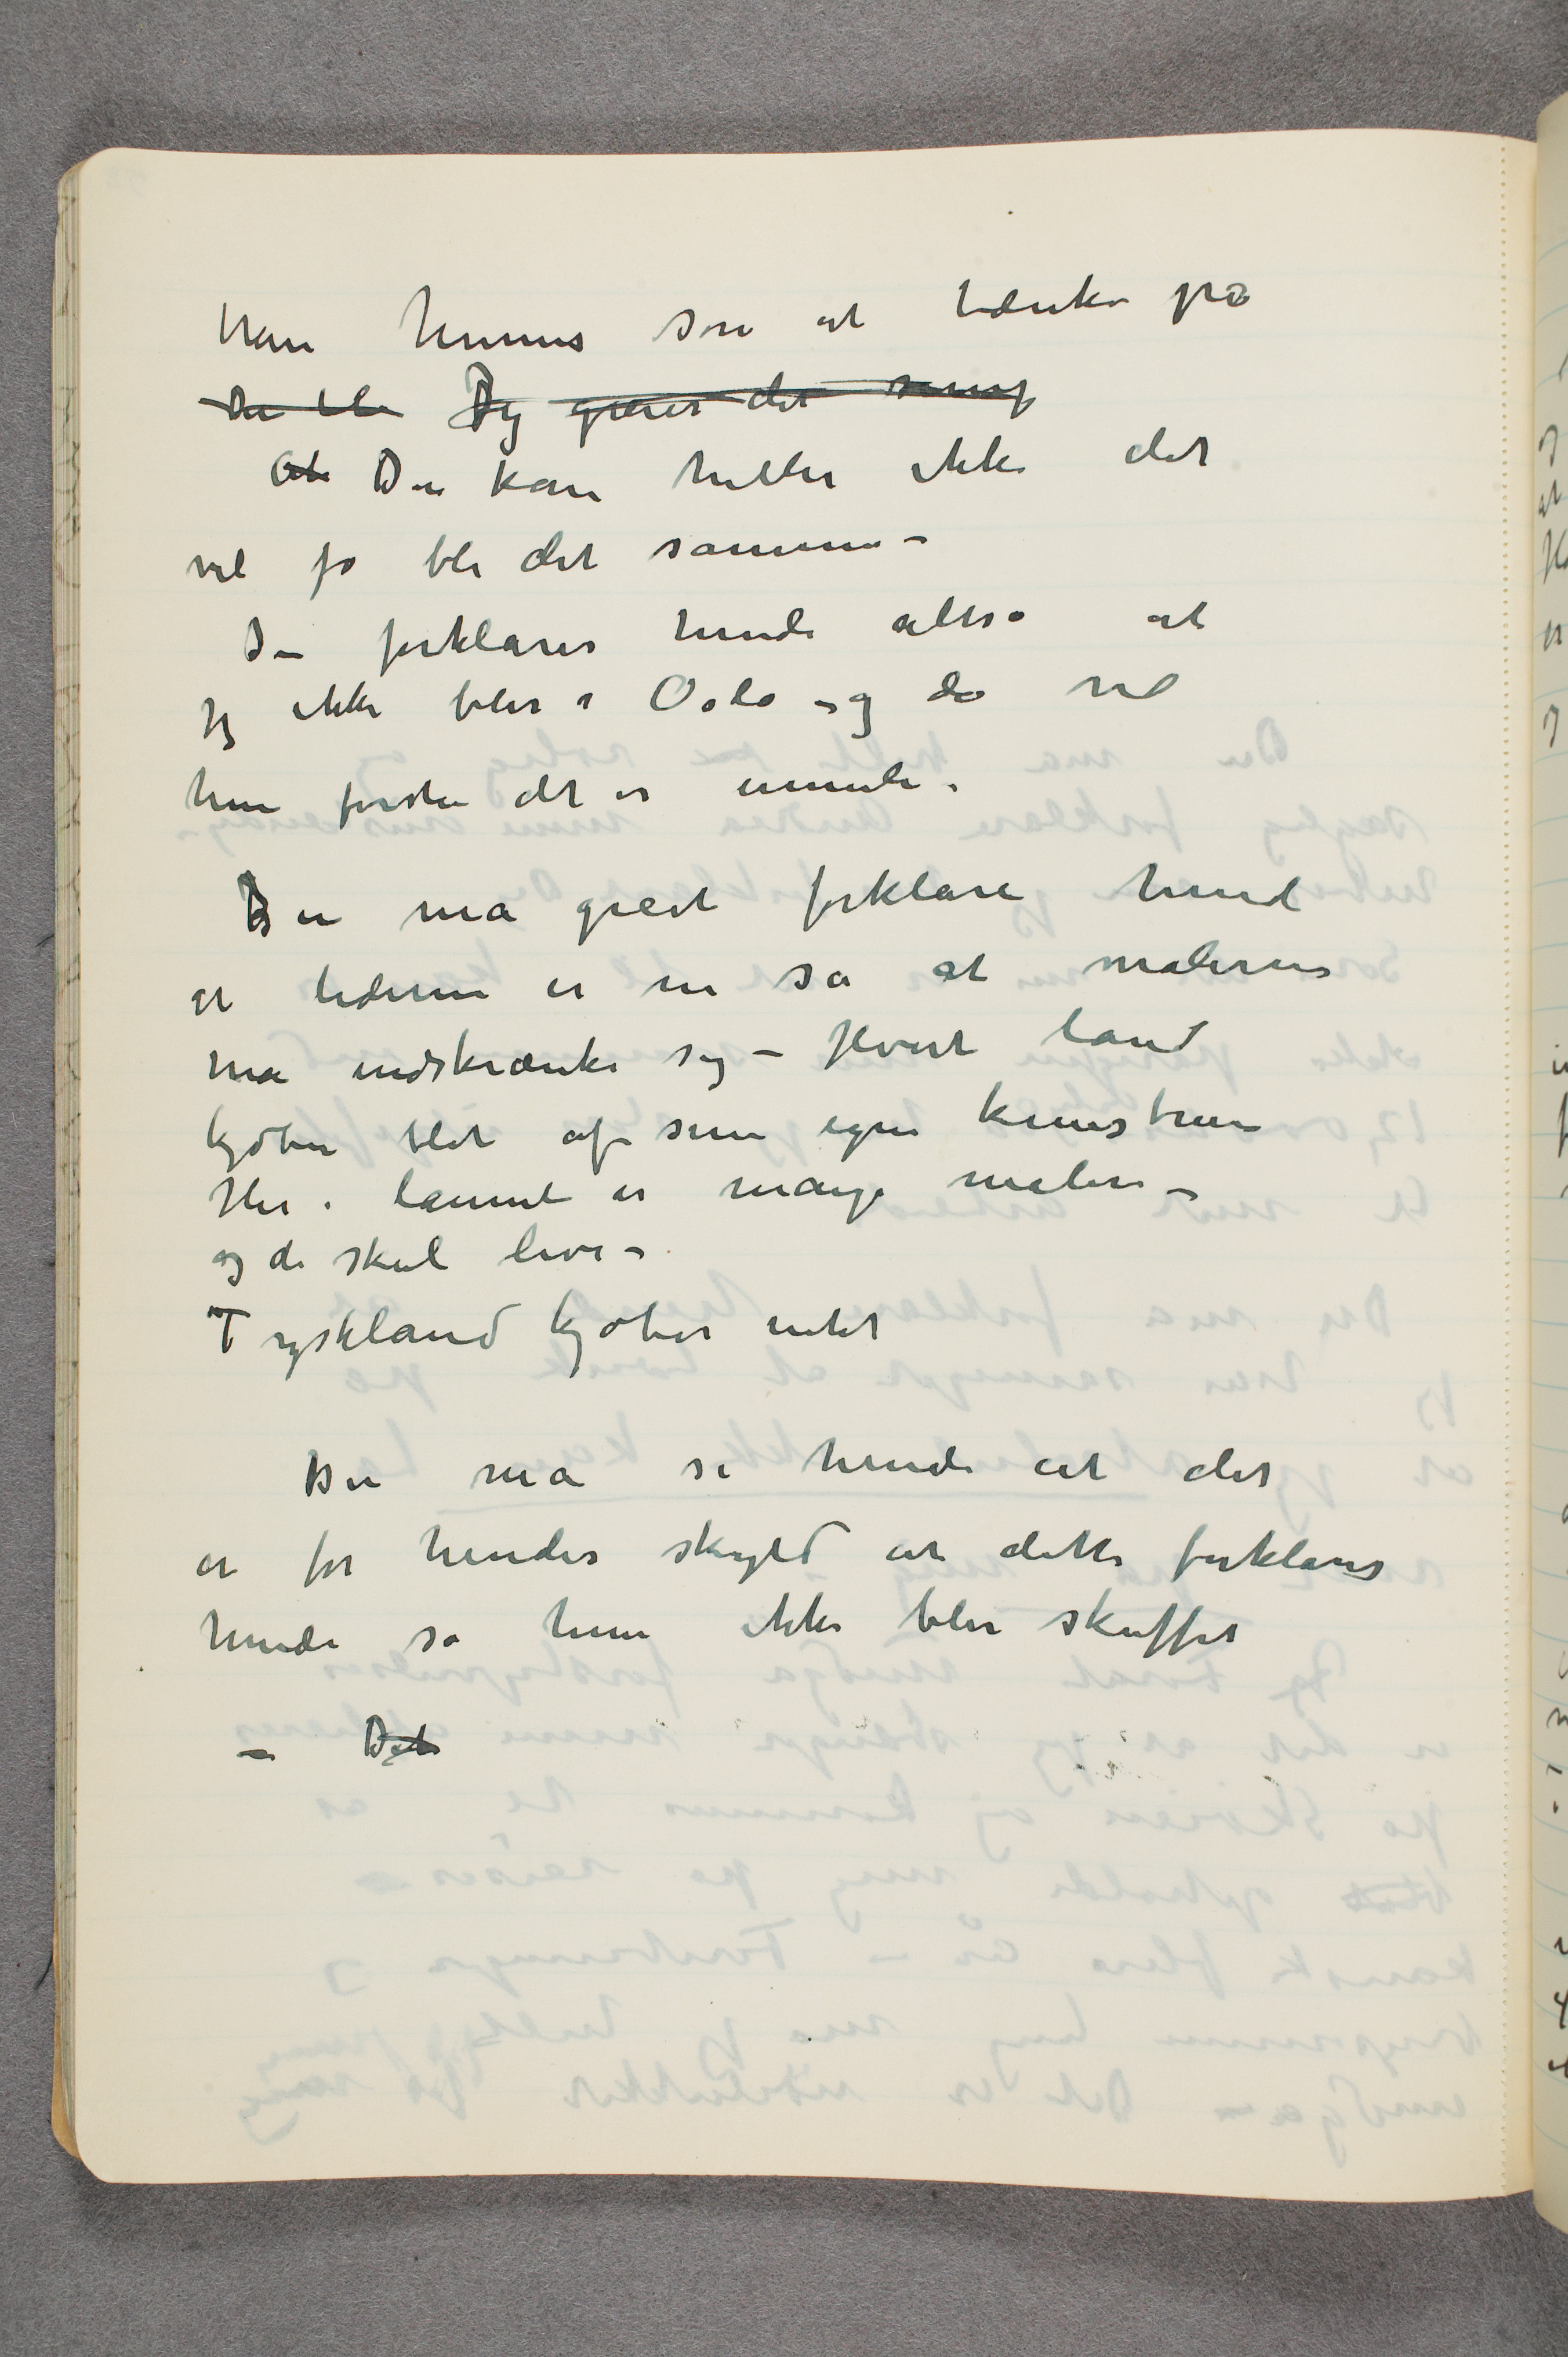 han hennes søn at tænke på
Du bli Jeg græier det
At Du kan heller ikke det
vil jo bli det samme –
Du forklarer hende altså at
jeg ikke blir i Oslo – og da vil
hun forstå det er umuli.
Du må greit forklare hende
at tiderne er nu så at malerne
må indskrænke sig – Hvert land
kjøber blot af sine egne kunstnere
Her i landet er mange malere –
og de skal leve –
Tyskland kjøber intet
Du må si hende at det
er for hendes skyld at dette forklares
hende så hun ikke blir skuffet
– Det